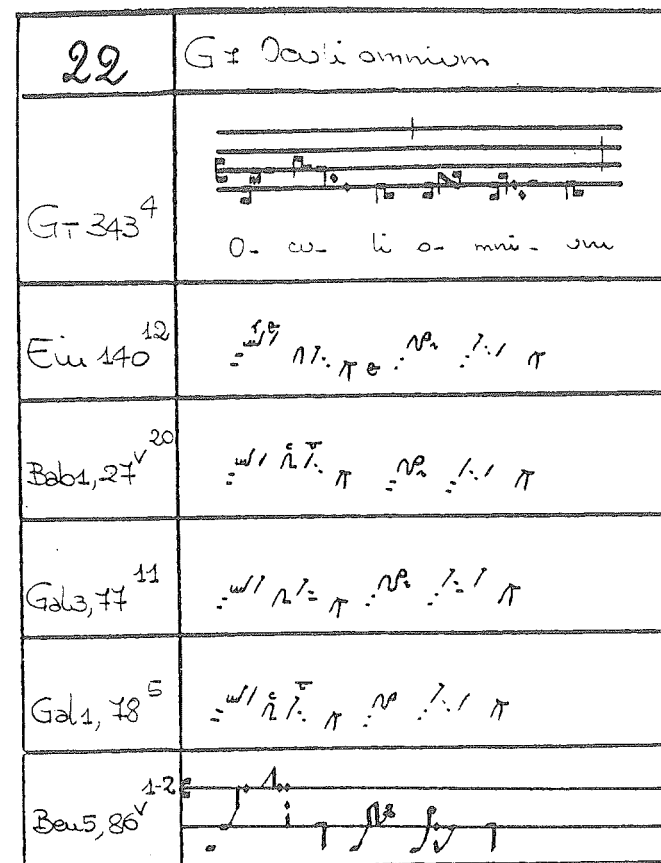 22
GR Oculi omnium
GT 343 4
O- cu- li o- mni- um
Ein 140 12
Bab1, 27v 20
Gal3, 77 11
Gal1, 78 5
Ben5, 86v 1-2